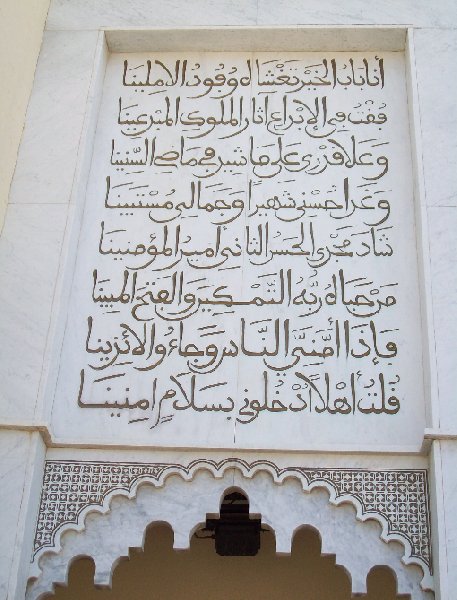 أنا باب الخير تغشاه وفود الآملينا
فقت في الإبداع آثار الملوك المبدعينا
وعلا قدري على ما شيد في ماضي السنينا
وغدا حسني شهيرًا وجمالي مستبينا
شاد مجدي الحسن الثاني أمير المؤمنينا
من حباه ربُّه التَّمكين والفتح المبينا
فإذا أمَّنيَ النَّاس وجاءُوا لائذينا
قلتُ أهلاً أدخلوني بسلامٍ آمنينا